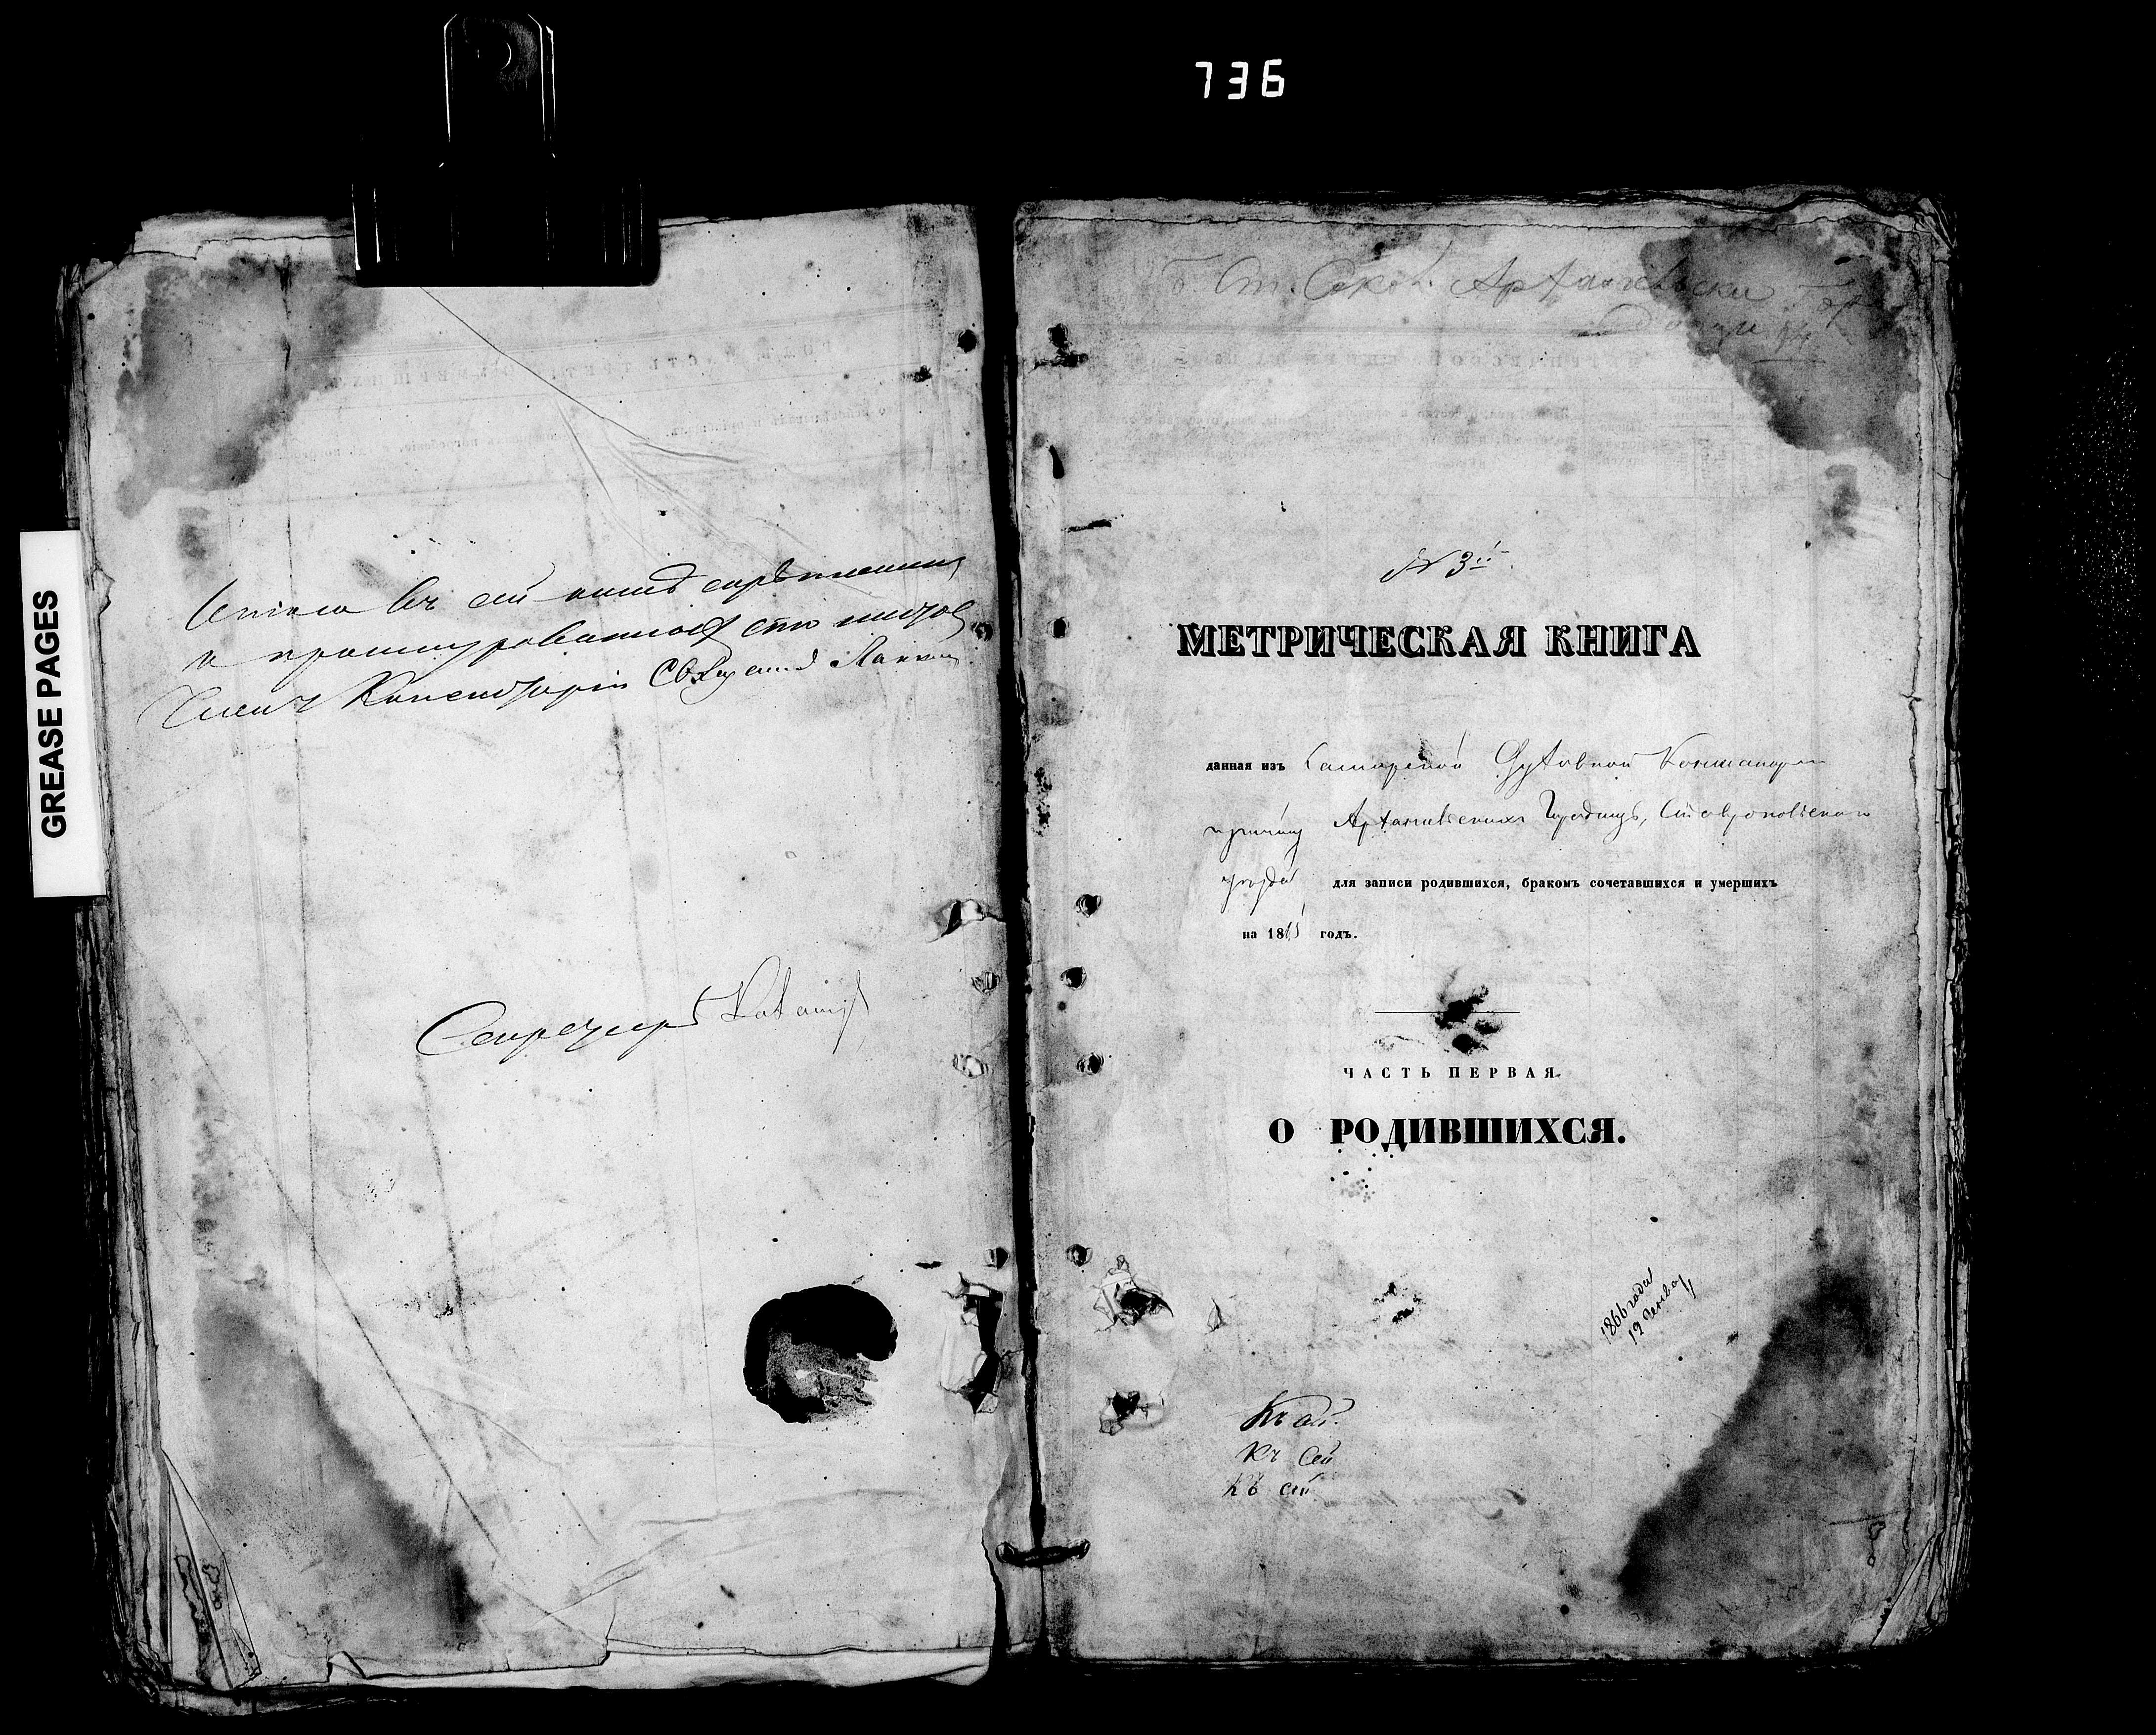 736
GREASE PAGES
Итого въ сей книгѣ скрѣпленных
и прошнурованных сто листов
Членъ Консисторіи Священ
Секретарь
Архангельски
№ 3й
МЕТРИЧЕСКАЯ КНИГА
данная изъ Самарской Духовной Консисторіи
причту Архангельских Городищъ, Ставропольскаго
уѣзда для записи родившихся, бракомъ сочетавшихся и умершихъ
на 1865 годъ.
ЧАСТЬ ПЕРВАЯ.
О РОДИВШИХСЯ.
1866 года
19
Къ сей
Къ сей
Къ сей